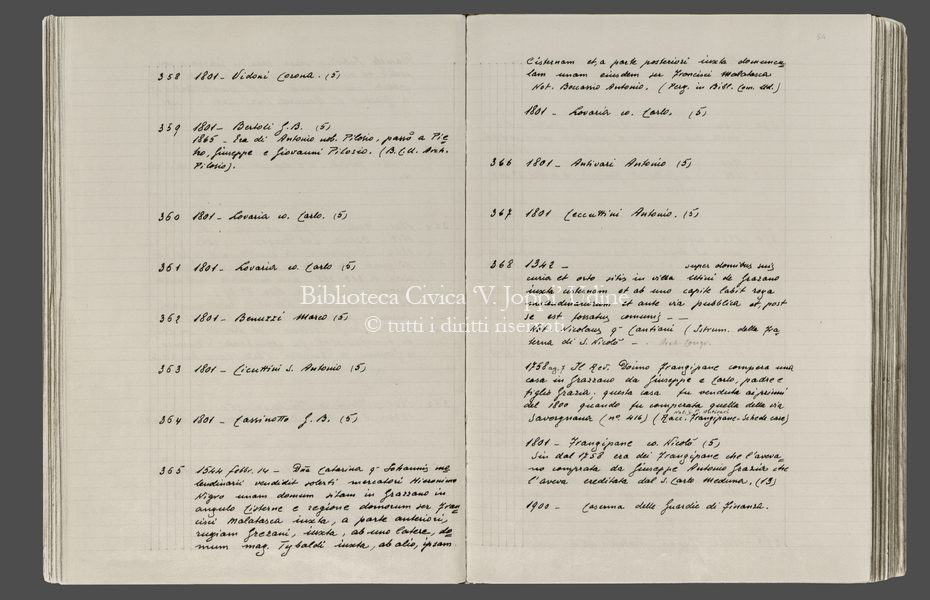 358 1801 - Vidoni Corona. (5)
359 1801 - Bertoli G.B. (5)
1865 - Era di Antonio nob. Pilosio, passò a Pie=
tro, Giuseppe e Giovanni Pilosio. (B.C.U. Arch.
Pilosio).
360 1801 - Lovaria co. Carlo. (5)
361 1801 - Lovaria co. Carlo (5)
362 1801 - Benuzzi Marco (5)
363 1801 - Cicuttini S. Antonio (5)
364 1801 - Cassinotto G.B. (5)
365 1544 febbr. 14 - Dna Catarina q. Johannis mo=
lendinarii vendidit solerti mercatori Hieronimo
Nigro unam domum sitam in Grazzano in
angulo Cisterne e regione domorum ser Fran=
cisci Malatasca iuxta, a parte anteriori,
rugiam Grezani, iuxta, ab uno latere, do=
mum mag. Tybaldi iuxta, ab alio, ipsam
54
Cisternam et, a parte posteriori iuxta domuncu=
lam unam eiusdem ser Francisci Malatasca
Not. Boccassio Antonio. (Perg. in Bibl. Com. Ud.)
1801 - Lovaria co. Carlo. (5)
366 1801 - Antivari Antonio (5)
367 1801 Ceccuttini Antonio. (5)
368 1342 - super domibus suis
curia et orto sitis in villa Utini de Grazano
iuxta cisternam et ab uno capite labit roya
molendinarum et ante via pubblica et, post
se est fossatus comunis - -
Not. Nicolaus q. Cantiani (Istrum. della Fra=
terna di S. Nicolò -
1758 ag. 7 Il Rev. Doimo Frangipane compera una
casa in Grazzano da Giuseppe e Carlo, padre e
figlio Grazia. questa casa fu venduta ai primi
del 1800 quando fu comperata quella della via
Savorgnana (n° 416) (Racc. Frangipane - Schede case)
1801 - Frangipane co. Nicolò (5)
Sin dal 1758 era dei Frangipane che l'aveva=
no comprata da Giuseppe Antonio Grazia che
l'aveva ereditata dal S. Carlo Meduna. (13)
1900 - Caserma delle Guardie di Finanza.
Biblioteca Civica 'V. Joppi' Udine
© tutti i diritti riservati